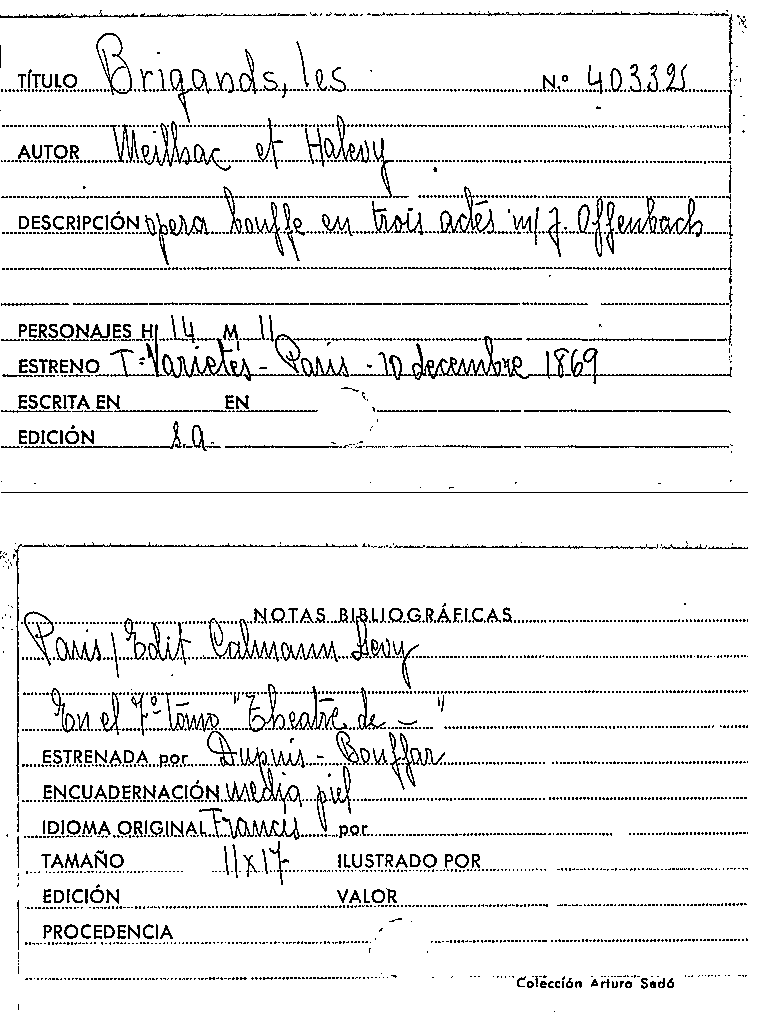 TÍTULO Brigands, les N.º 403325
AUTOR Meilhac et Halevy
DESCRIPCIÓN opera bouffe en trois actes m/ J. Offenbach
PERSONAJES H 14 M 11
ESTRENO T= Varietés - Paris - 10 decembre 1869
ESCRITA EN EN
EDICIÓN s.a.
NOTAS BIBLIOGRÁFICAS
Paris / Edit Calmann Levy
En el 7º tomo "Theatre de — "
ESTRENADA por Dupuis - Bouffar
ENCUADERNACIÓN media piel
IDIOMA ORIGINAL Francis por
TAMAÑO 11x17 ILUSTRADO POR
EDICIÓN VALOR
PROCEDENCIA
Colección Arturo Sedó